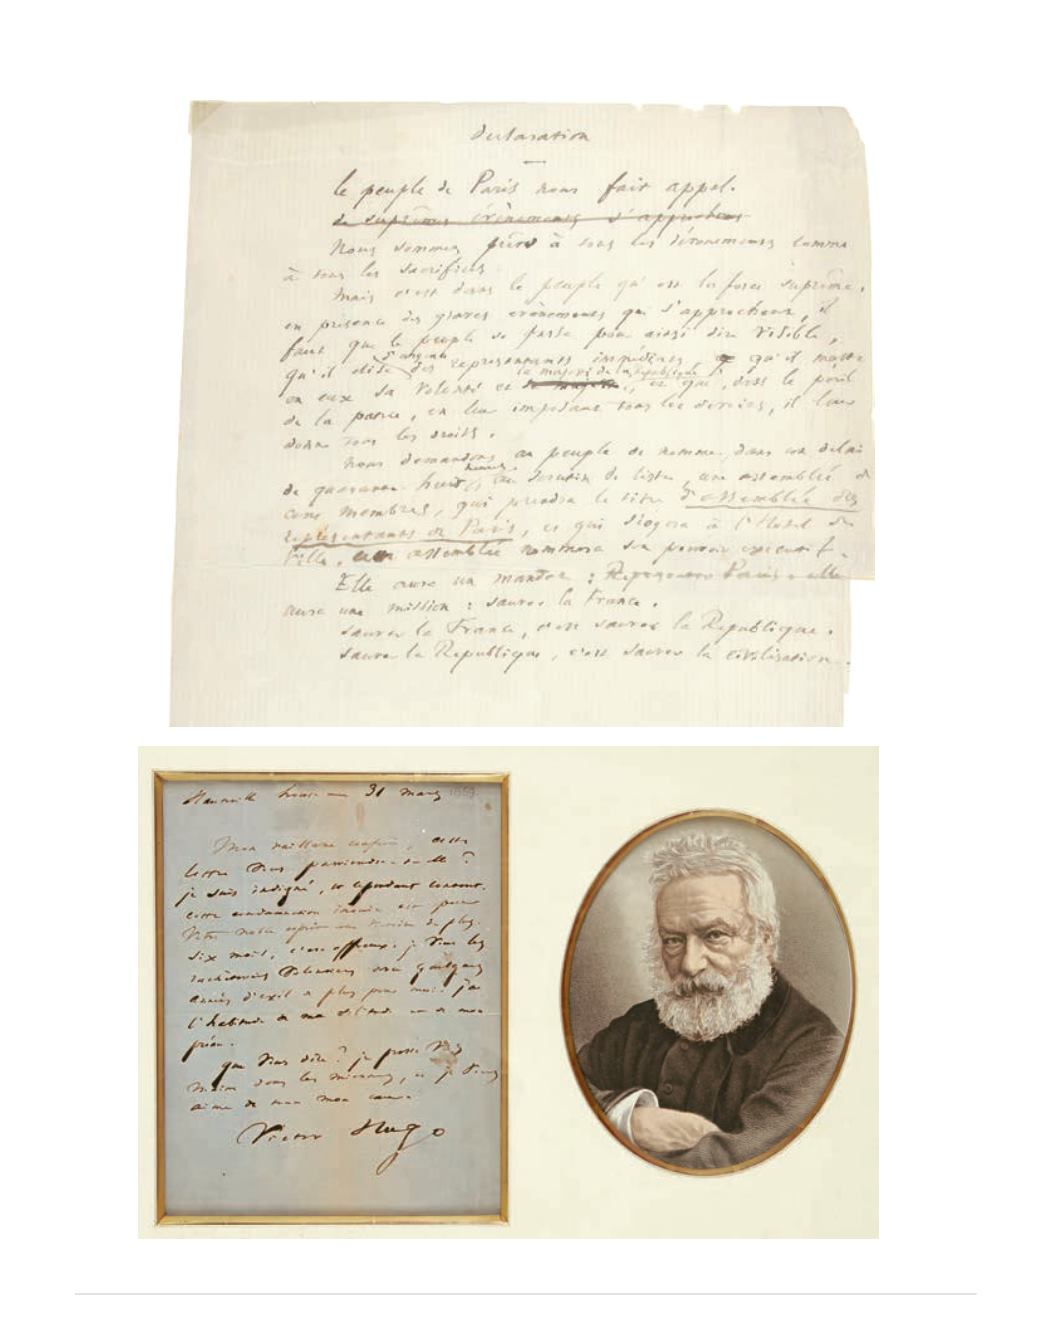 Déclaration
le peuple de Paris nous fait appel.
de suprêmes évènements s'approchent
Nous sommes prêts à tous les évènements comme
à tous les sacrifices.
Mais c'est dans le peuple qu'est la force suprême.
en présence des graves évènements qui s'approchent, il
faut que le peuple se fasse pour ainsi dire visible,
qu'il élise d'urgence des représentants immédiats, qu'il mette
la majesté de la république
en eux sa volonté et et que, dans le péril
de la patrie, en leur imposant tous les devoirs, il leur
donne tous les droits.
Nous demandons au peuple de nommer, dans un délai
de quarante-huit heures, au scrutin de liste, une assemblée de
cent membres, qui prendra le titre d'assemblée des
représentants de Paris, et qui siégera à l'Hôtel de
Ville. assemblée nommera son pouvoir exécutif.
Elle aura un mandat : Représenter Paris. elle
aura une mission : sauver la France.
Sauver la France, c'est sauver la République.
Sauver la République, c'est sauver la civilisation.
Hauteville house 31 mars 1869
Mon vaillant confrère, cette
lettre vous parviendra-t-elle ?
je suis indigné, et cependant content.
cette condamnation inouïe est pour
votre noble esprit un de plus.
Six mois, c'est affreux. je vous les
volontiers quelques
années d'exil de plus pour moi. j'ai
l'habitude de ma solitude et de mon
que vous dire ? je presse vos
mains dans les miennes, et je vous
aime de tout mon cœur.
Victor Hugo